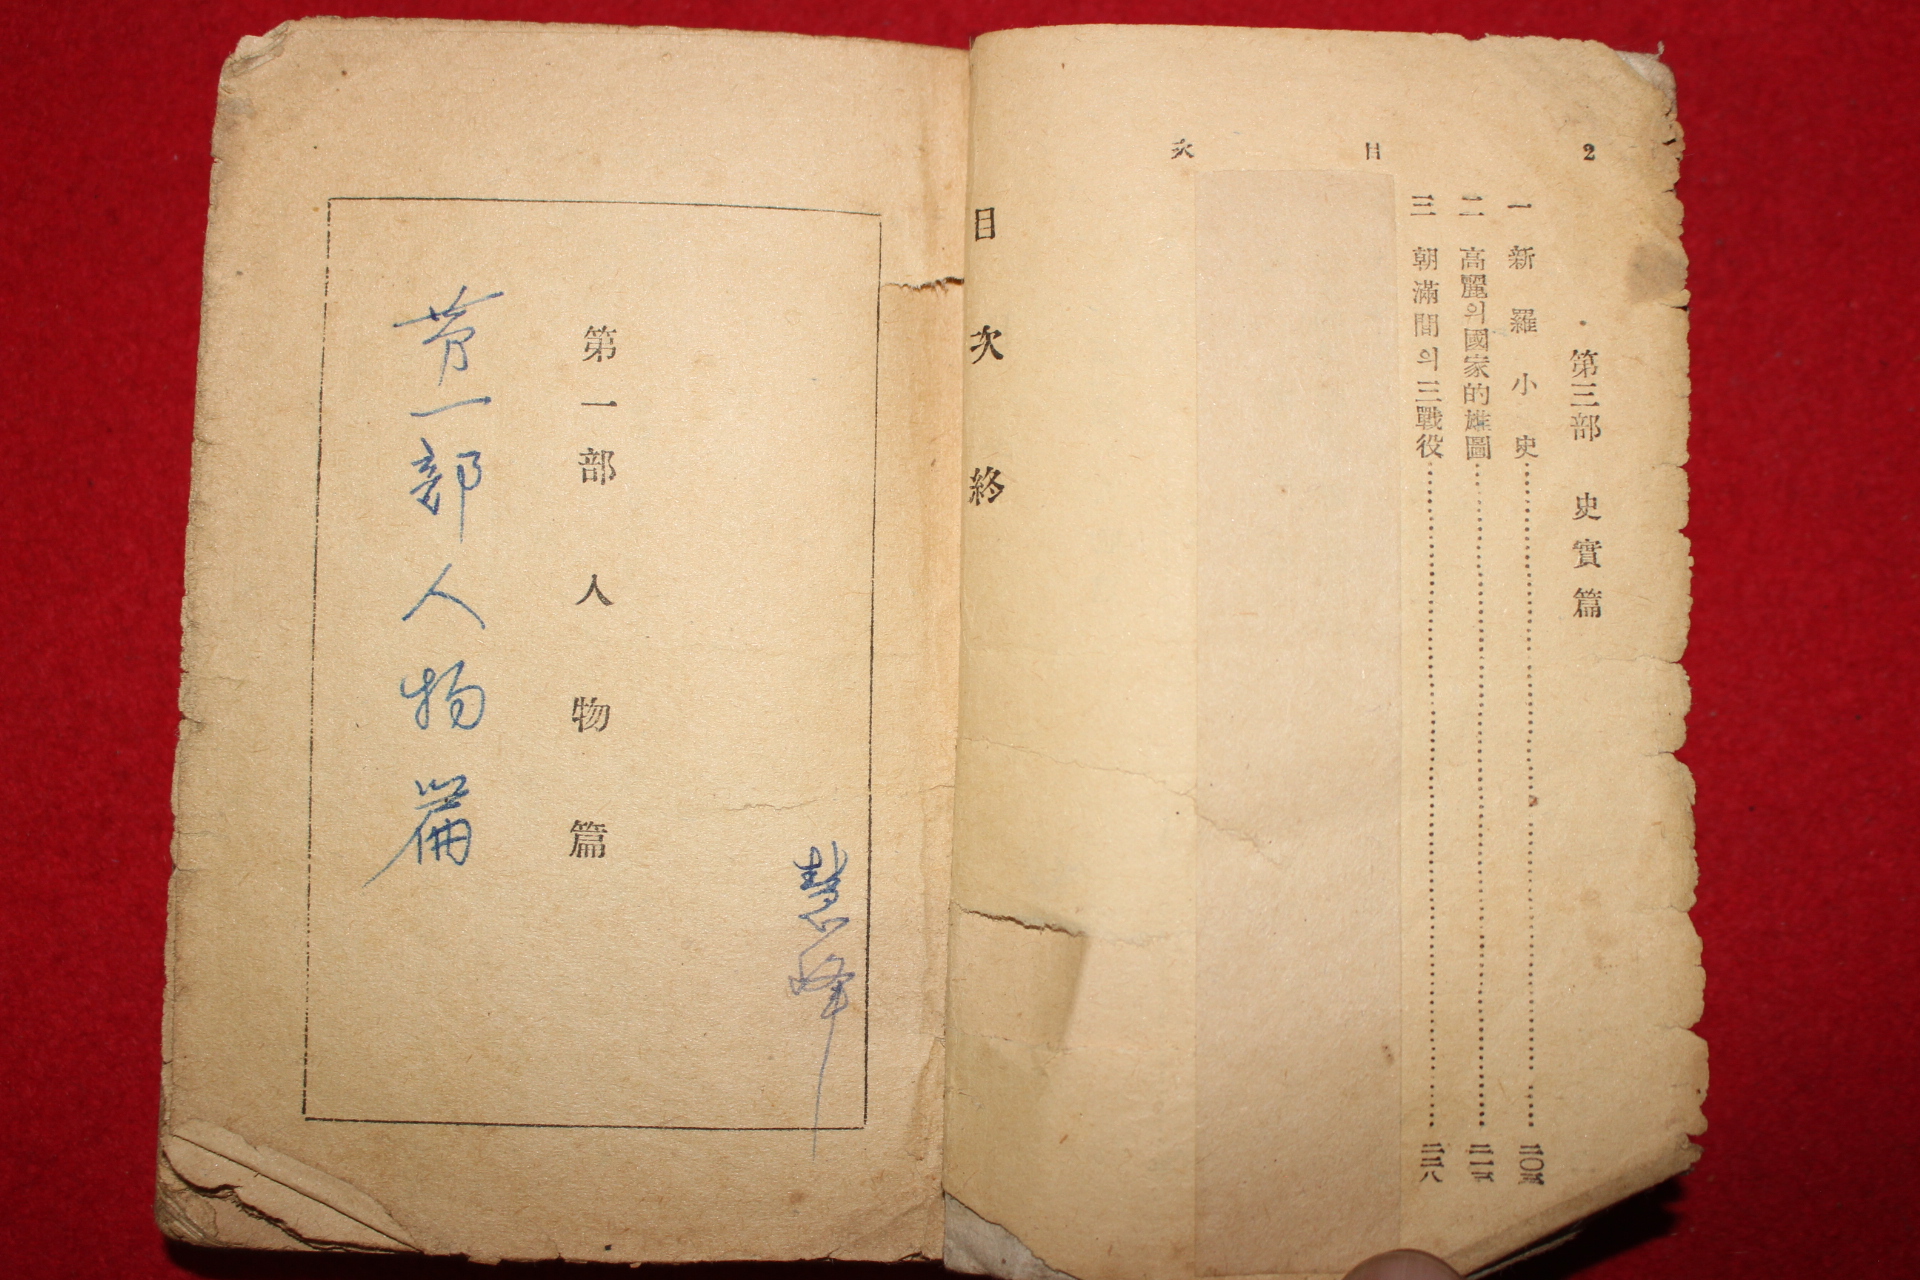 2
目 次
第三部 史實篇
一 新羅小史 二〇五
二 高麗의國家的雄圖
三 朝滿間의三戰役 二三八
目次終
慧峰
第一部 人物篇
第一部人物篇